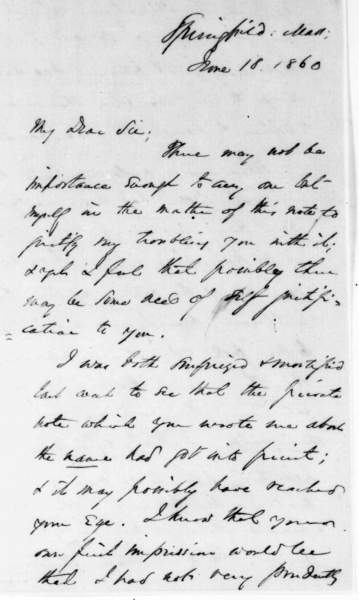 Springfield: Mass:
June 18. 1860
My Dear Sir;
There may not be
importance enough to any one but
myself in the matter of this note to
justify my troubling you with it;
& yet I feel that possibly there
may be some need of self justifi-
=cation to you.
I was both surprized & mortified
last week to see that the private
note which you wrote me about
the name had got into print;
& it may possibly have reached
your Eye. I know that your
own first impression would be
that I had not very prudently